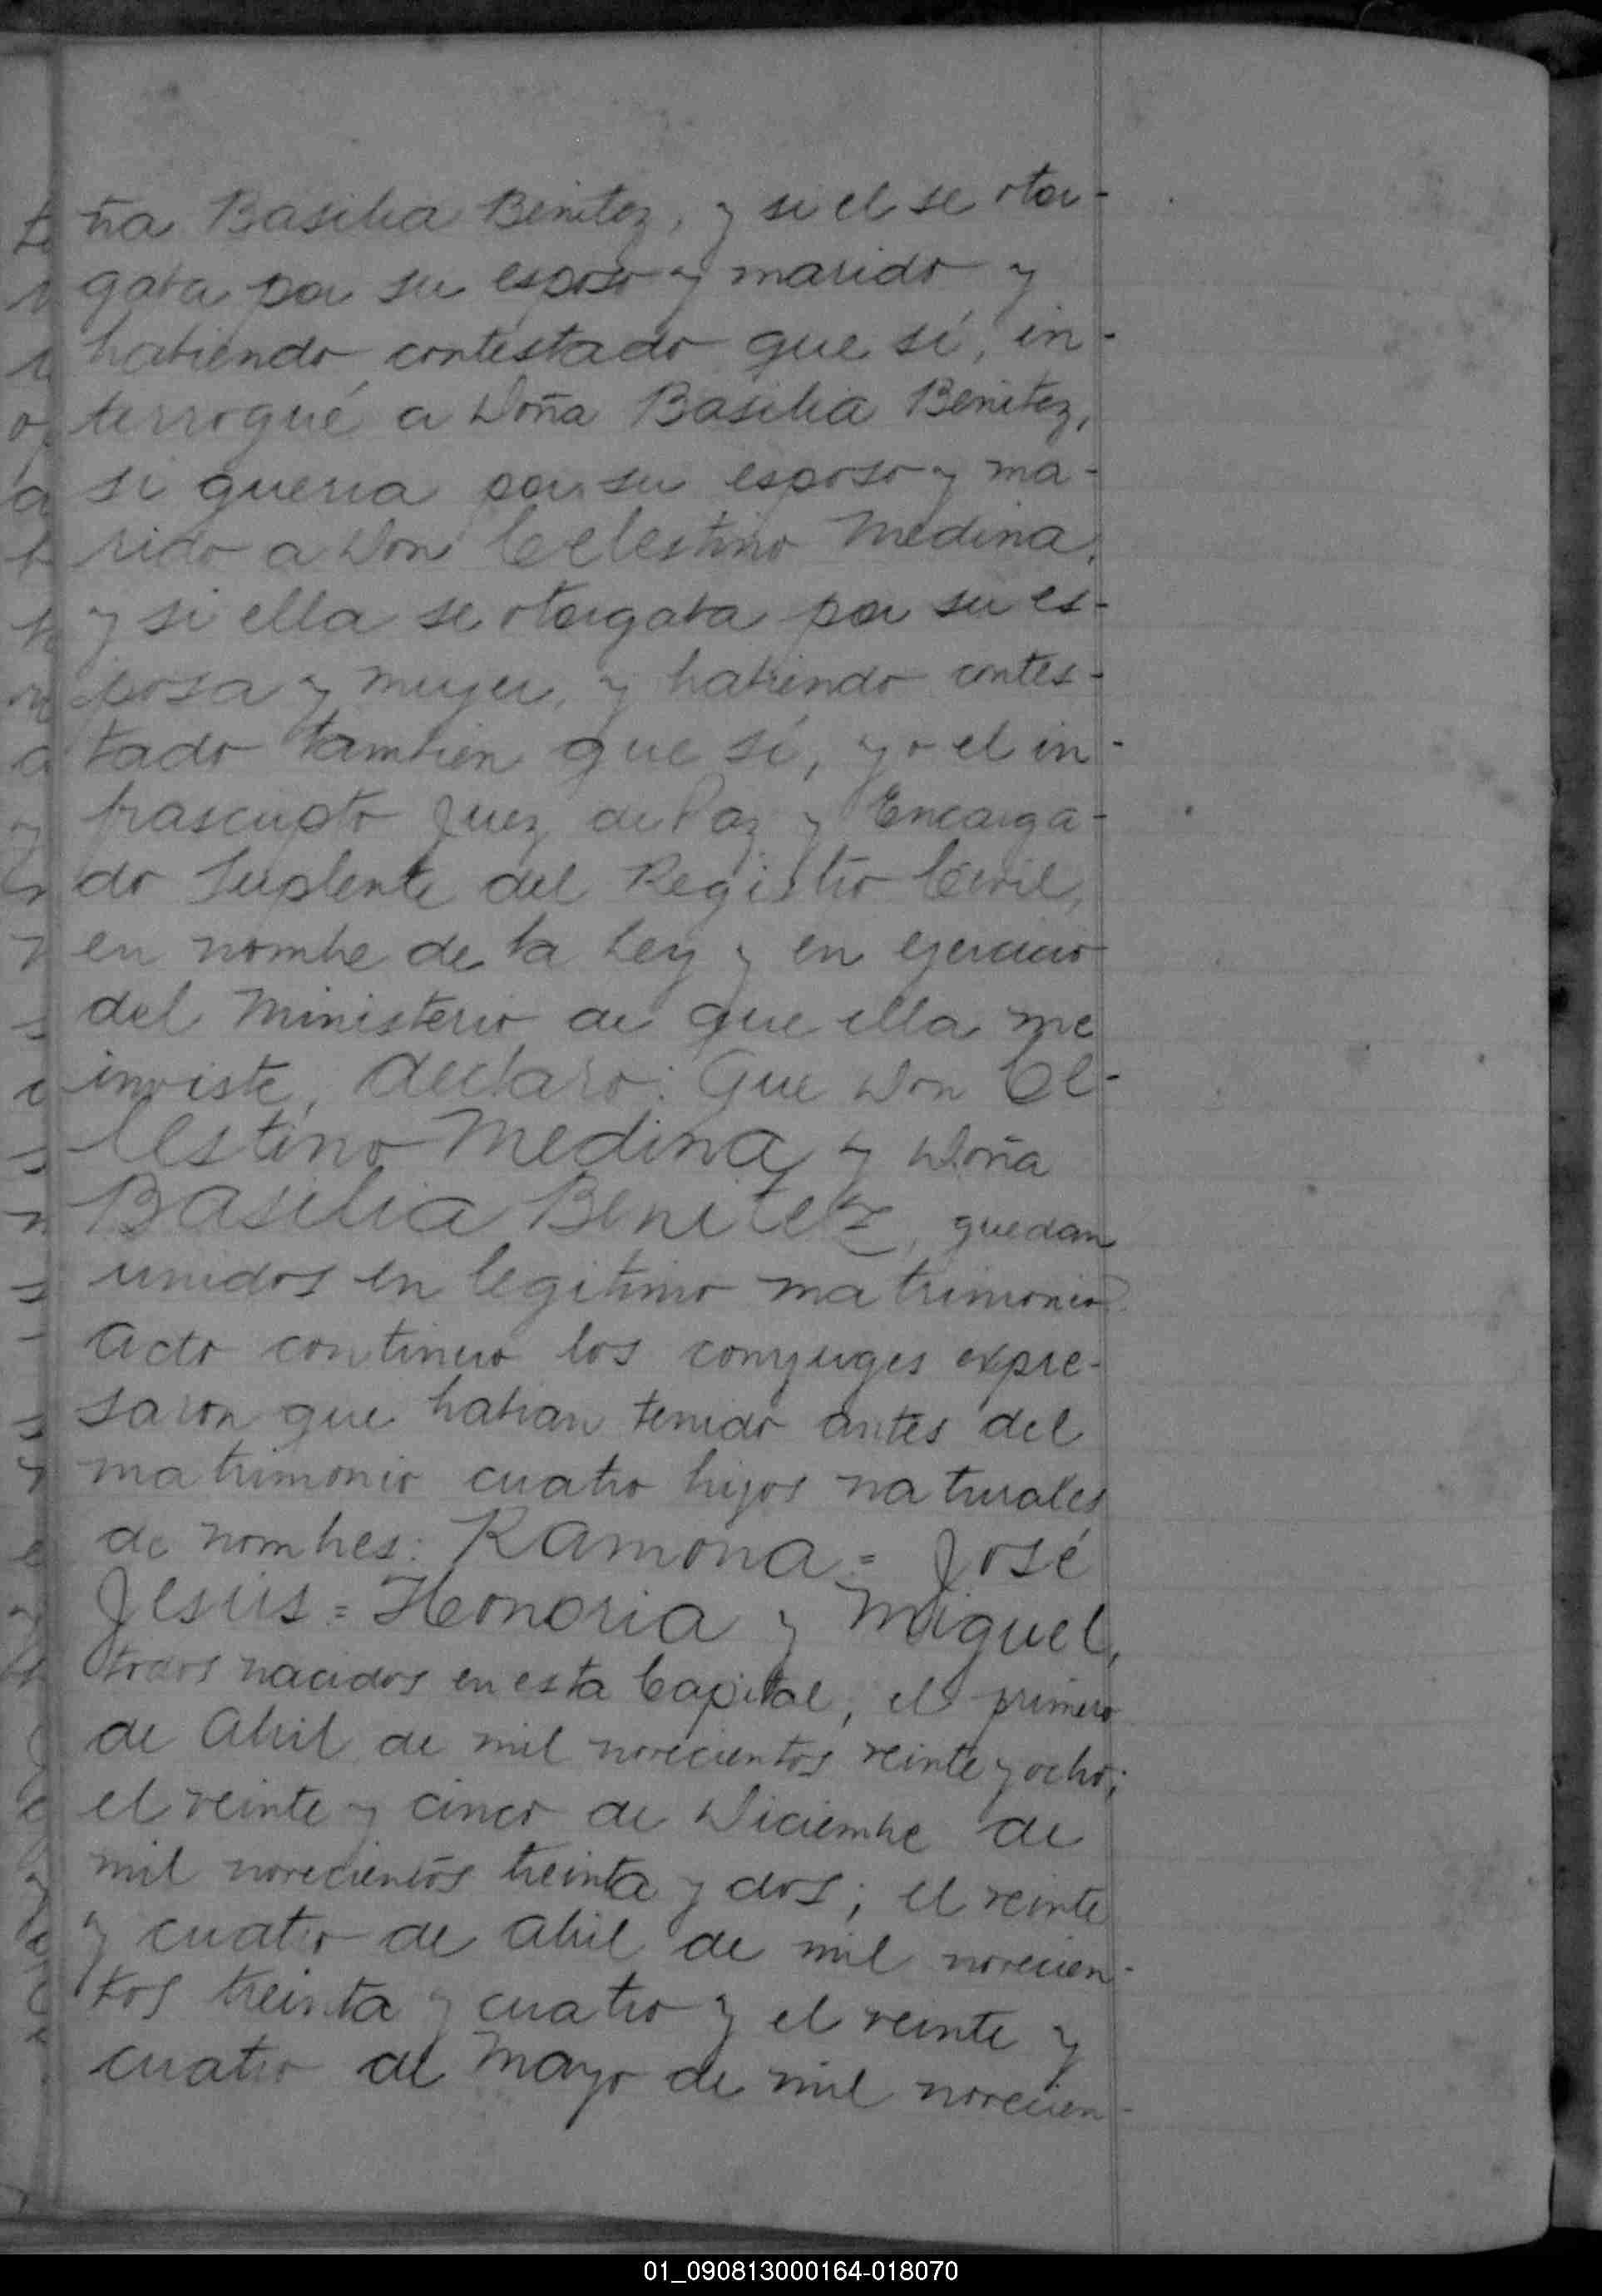 ña Basilia Benitez, y si el se otor-
gaba por su esposo y marido y
habiendo contestado que sí, in-
terrogué a Doña Basilia Benitez,
si queria por su esposo y ma-
rido a Don Celestino Medina,
y si ella se otorgaba por su es-
posa y mujer, y habiendo contes-
tado tambien que sí, yo el in-
frascripto Juez de Paz y Encarga-
do Suplente del Registro Civil,
en nombre de la Ley y en ejercicio
del Ministerio de que ella me
inviste, declaro: Que Don Ce-
lestino Medina y Doña
Basilia Benitez, quedan
unidos en legitimo matrimonio
Acto continuo los conyuges expre-
saron que habian tenido antes del
matrimonio cuatro hijos naturales
de nombres: Ramona = José
Jesús = Honoria y Miguel,
todos nacidos en esta Capital, el primero
de Abril de mil novecientos veinte y ocho;
el veinte y cinco de Diciembre de
mil novecientos treinta y dos; el veinte
y cuatro de Abril de mil novecien-
tos treinta y cuatro y el veinte y
cuatro de Mayo de mil novecien-
01_090813000164-018070